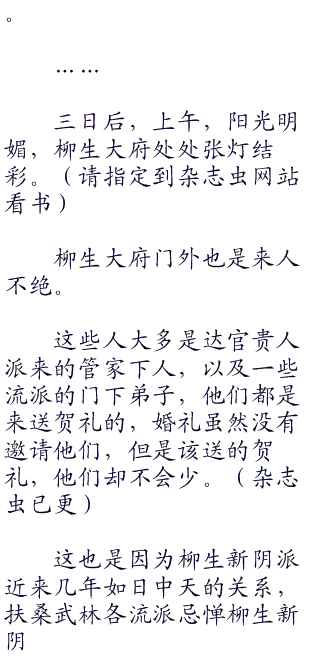 。
……
三日后，上午，阳光明
媚，柳生大府处处张灯结
彩。（请指定到杂志虫网站
看书）
柳生大府门外也是来人
不绝。
这些人大多是达官贵人
派来的管家下人，以及一些
流派的门下弟子，他们都是
来送贺礼的，婚礼虽然没有
邀请他们，但是该送的贺
礼，他们却不会少。（杂志
虫已更）
这也是因为柳生新阴派
近来几年如日中天的关系，
扶桑武林各流派忌惮柳生新
阴